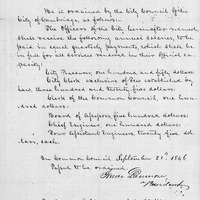 Be it ordained by the City Council of the
City of Cambridge, as follows:
The Officers of the City hereinafter named,
shall receive the following annual salaries, to be
paid in equal quarterly payments, which shall be
in full for all services rendered in their official ca-
pacity:
City Treasurer, one hundred and fifty dollars.
City Clerk exclusive of fees established by
law, three hundred and twenty five dollars.
Clerk of the Common Council, one hun-
dred dollars.
Board of Assessors five hundred dollars.
Chief Engineer, one hundred dollars.
Four Assistant Engineers twenty five dol-
lars, each.
In Common Council, September 22d 1846
Passed to be ordained
Isaac Livermore
President